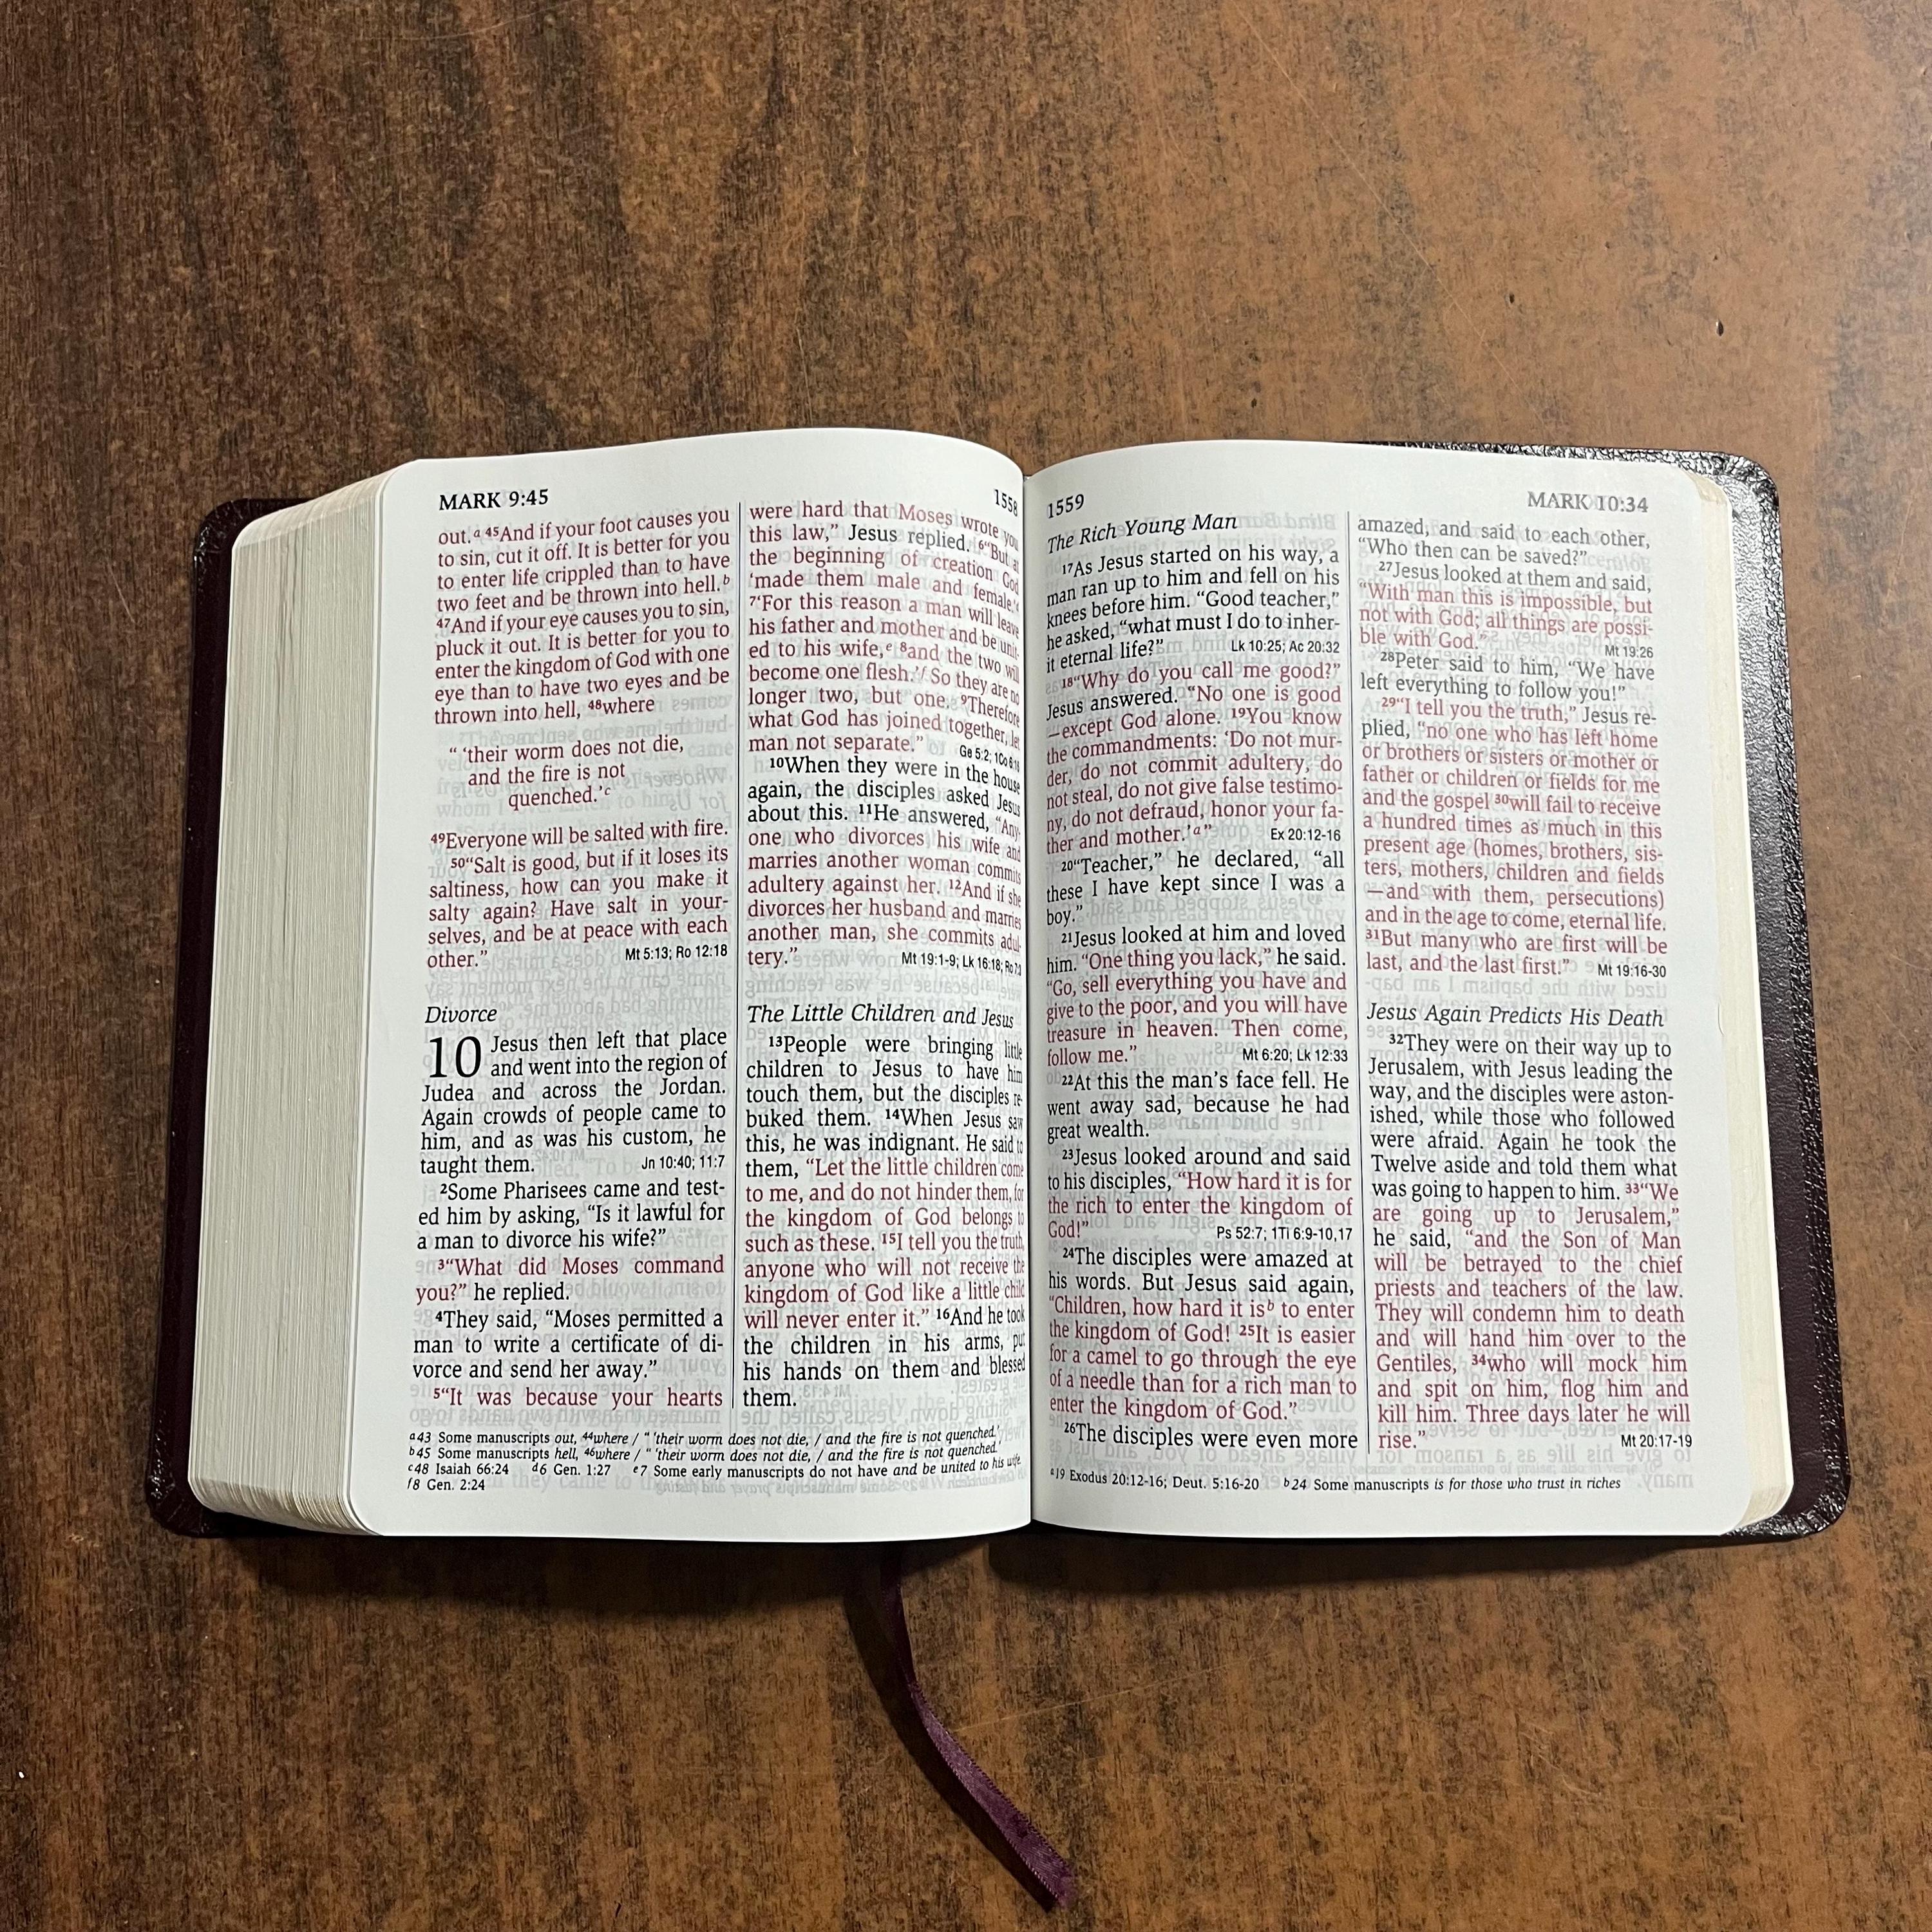 MARK 9:45
1558
out.ᵃ ⁴⁵And if your foot causes you
to sin, cut it off. It is better for you
to enter life crippled than to have
two feet and be thrown into hell.ᵇ
⁴⁷And if your eye causes you to sin,
pluck it out. It is better for you to
enter the kingdom of God with one
eye than to have two eyes and be
thrown into hell, ⁴⁸where
“ ‘their worm does not die,
and the fire is not
quenched.’ᶜ
⁴⁹Everyone will be salted with fire.
⁵⁰“Salt is good, but if it loses its
saltiness, how can you make it
salty again? Have salt in your-
selves, and be at peace with each
other.” Mt 5:13; Ro 12:18
Divorce
10 Jesus then left that place
and went into the region of
Judea and across the Jordan.
Again crowds of people came to
him, and as was his custom, he
taught them. Jn 10:40; 11:7
²Some Pharisees came and test-
ed him by asking, “Is it lawful for
a man to divorce his wife?”
³“What did Moses command
you?” he replied.
⁴They said, “Moses permitted a
man to write a certificate of di-
vorce and send her away.”
⁵“It was because your hearts
were hard that Moses wrote you
this law,” Jesus replied. ⁶“But at
the beginning of creation God
‘made them male and female.’ᵈ
⁷‘For this reason a man will leave
his father and mother and be unit-
ed to his wife,ᵉ ⁸and the two will
become one flesh.’ᶠ So they are no
longer two, but one. ⁹Therefore
what God has joined together, let
man not separate.” Ge 5:2; 1Co 6:16
¹⁰When they were in the house
again, the disciples asked Jesus
about this. ¹¹He answered, “Any-
one who divorces his wife and
marries another woman commits
adultery against her. ¹²And if she
divorces her husband and marries
another man, she commits adul-
tery.” Mt 19:1-9; Lk 16:18; Ro 7:3
The Little Children and Jesus
¹³People were bringing little
children to Jesus to have him
touch them, but the disciples re-
buked them. ¹⁴When Jesus saw
this, he was indignant. He said to
them, “Let the little children come
to me, and do not hinder them, for
the kingdom of God belongs to
such as these. ¹⁵I tell you the truth,
anyone who will not receive the
kingdom of God like a little child
will never enter it.” ¹⁶And he took
the children in his arms, put
his hands on them and blessed
them.
ᵃ43 Some manuscripts out, ⁴⁴where / “ ‘their worm does not die, / and the fire is not quenched.’
ᵇ45 Some manuscripts hell, ⁴⁶where / “ ‘their worm does not die, / and the fire is not quenched.’
ᶜ48 Isaiah 66:24 ᵈ6 Gen. 1:27 ᵉ7 Some early manuscripts do not have and be united to his wife.
ᶠ8 Gen. 2:24
1559
MARK 10:34
The Rich Young Man
¹⁷As Jesus started on his way, a
man ran up to him and fell on his
knees before him. “Good teacher,”
he asked, “what must I do to inher-
it eternal life?” Lk 10:25; Ac 20:32
¹⁸“Why do you call me good?”
Jesus answered. “No one is good
—except God alone. ¹⁹You know
the commandments: ‘Do not mur-
der, do not commit adultery, do
not steal, do not give false testimo-
ny, do not defraud, honor your fa-
ther and mother.’ᵃ” Ex 20:12-16
²⁰“Teacher,” he declared, “all
these I have kept since I was a
boy.”
²¹Jesus looked at him and loved
him. “One thing you lack,” he said.
“Go, sell everything you have and
give to the poor, and you will have
treasure in heaven. Then come,
follow me.” Mt 6:20; Lk 12:33
²²At this the man’s face fell. He
went away sad, because he had
great wealth.
²³Jesus looked around and said
to his disciples, “How hard it is for
the rich to enter the kingdom of
God!” Ps 52:7; 1Ti 6:9-10,17
²⁴The disciples were amazed at
his words. But Jesus said again,
“Children, how hard it isᵇ to enter
the kingdom of God! ²⁵It is easier
for a camel to go through the eye
of a needle than for a rich man to
enter the kingdom of God.”
²⁶The disciples were even more
amazed, and said to each other,
“Who then can be saved?”
²⁷Jesus looked at them and said,
“With man this is impossible, but
not with God; all things are possi-
ble with God.” Mt 19:26
²⁸Peter said to him, “We have
left everything to follow you!”
²⁹“I tell you the truth,” Jesus re-
plied, “no one who has left home
or brothers or sisters or mother or
father or children or fields for me
and the gospel ³⁰will fail to receive
a hundred times as much in this
present age (homes, brothers, sis-
ters, mothers, children and fields
—and with them, persecutions)
and in the age to come, eternal life.
³¹But many who are first will be
last, and the last first.” Mt 19:16-30
Jesus Again Predicts His Death
³²They were on their way up to
Jerusalem, with Jesus leading the
way, and the disciples were aston-
ished, while those who followed
were afraid. Again he took the
Twelve aside and told them what
was going to happen to him. ³³“We
are going up to Jerusalem,”
he said, “and the Son of Man
will be betrayed to the chief
priests and teachers of the law.
They will condemn him to death
and will hand him over to the
Gentiles, ³⁴who will mock him
and spit on him, flog him and
kill him. Three days later he will
rise.” Mt 20:17-19
ᵃ19 Exodus 20:12-16; Deut. 5:16-20 ᵇ24 Some manuscripts is for those who trust in riches